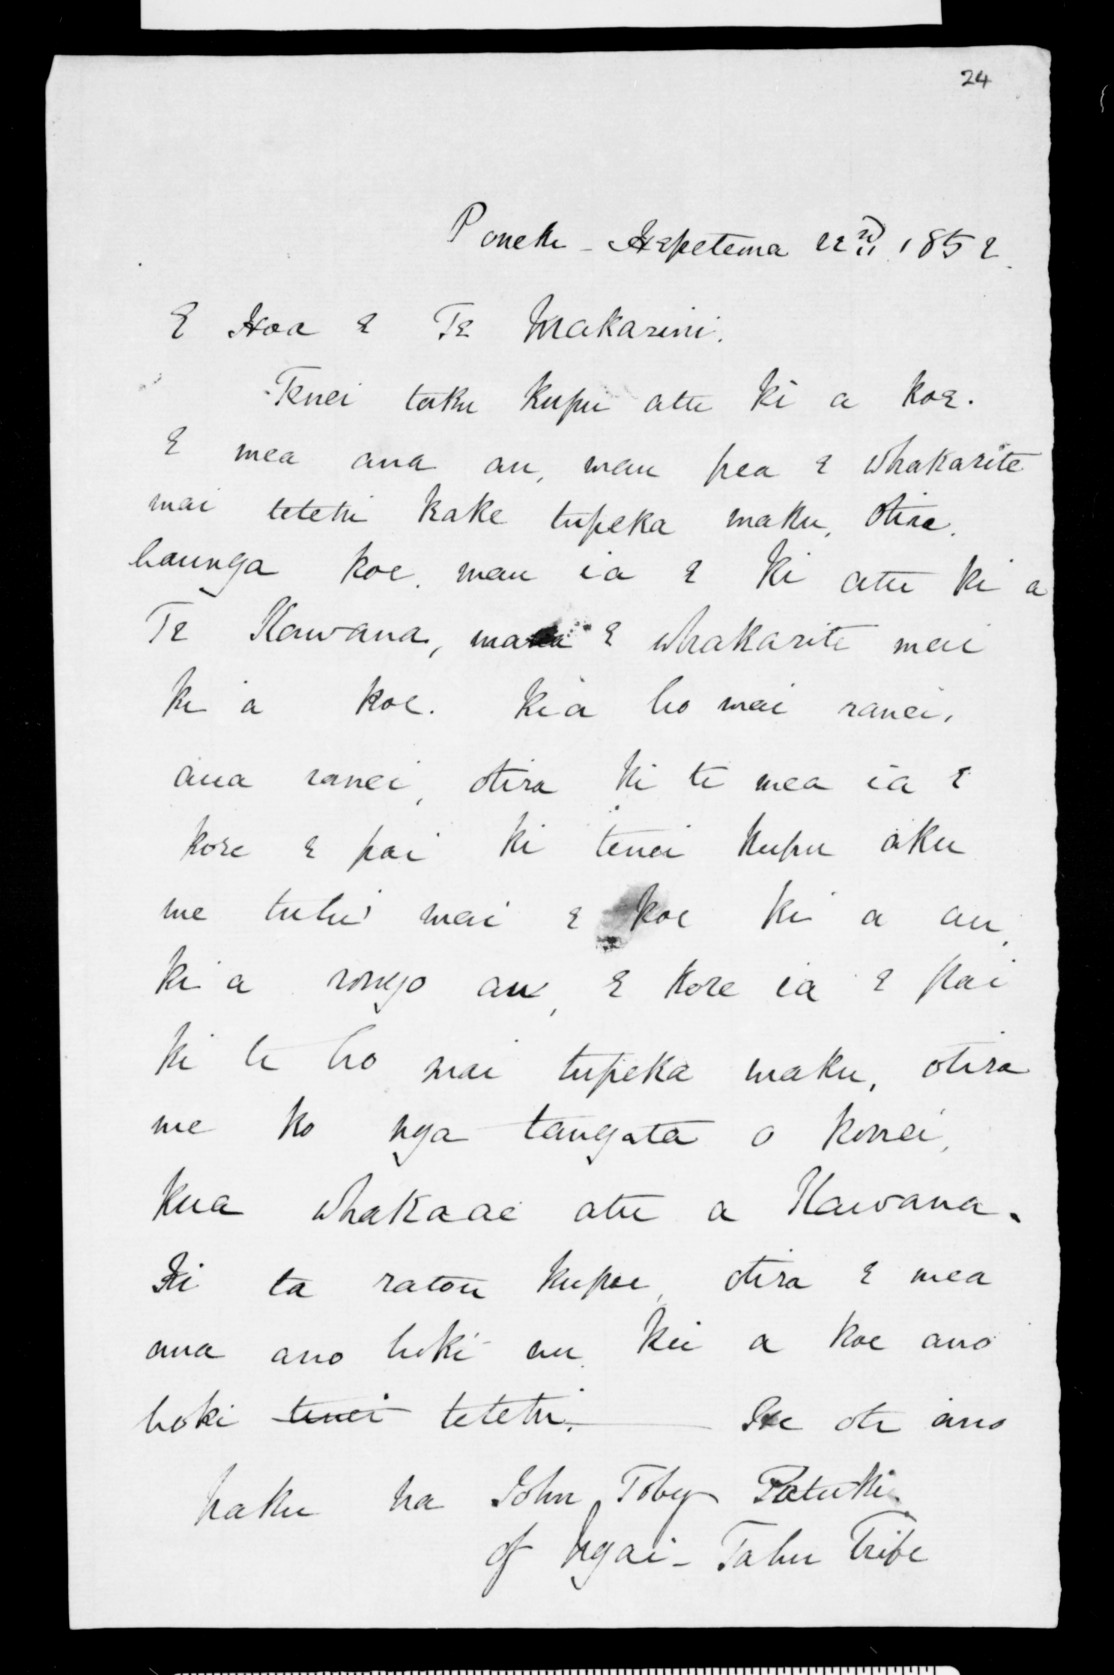 24
Poneke - Hepetema 22nd 1852.
E Hoa e Te Makarini.
Tenei taku kupu atu ki a koe.
E mea ana au, mau pea e whakarite
mai tetehi kake tupeka maku, otira,
haunga koe. mau ia e ki atu ki a
Te Kawana, mana e whakarite mai
ki a koe. kia ho mai ranei,
aua ranei, otira ki te mea ia e
kore e pai ki tenei kupu aku
me tuhi mai e koe ki a au,
ki a rongo au, e kore ia e pai
ki te ho mai tupeka maku, otira
me ko nga tangata o konei,
kua whakaae atu a Kawana.
Ki ta ratou kupu, otira e mea
ana ano hoki au. kei a koe ano
hoki tenei tetehi. Heoti ano
Naku na John Toby Patuki
of Ngai-Tahu Tribe